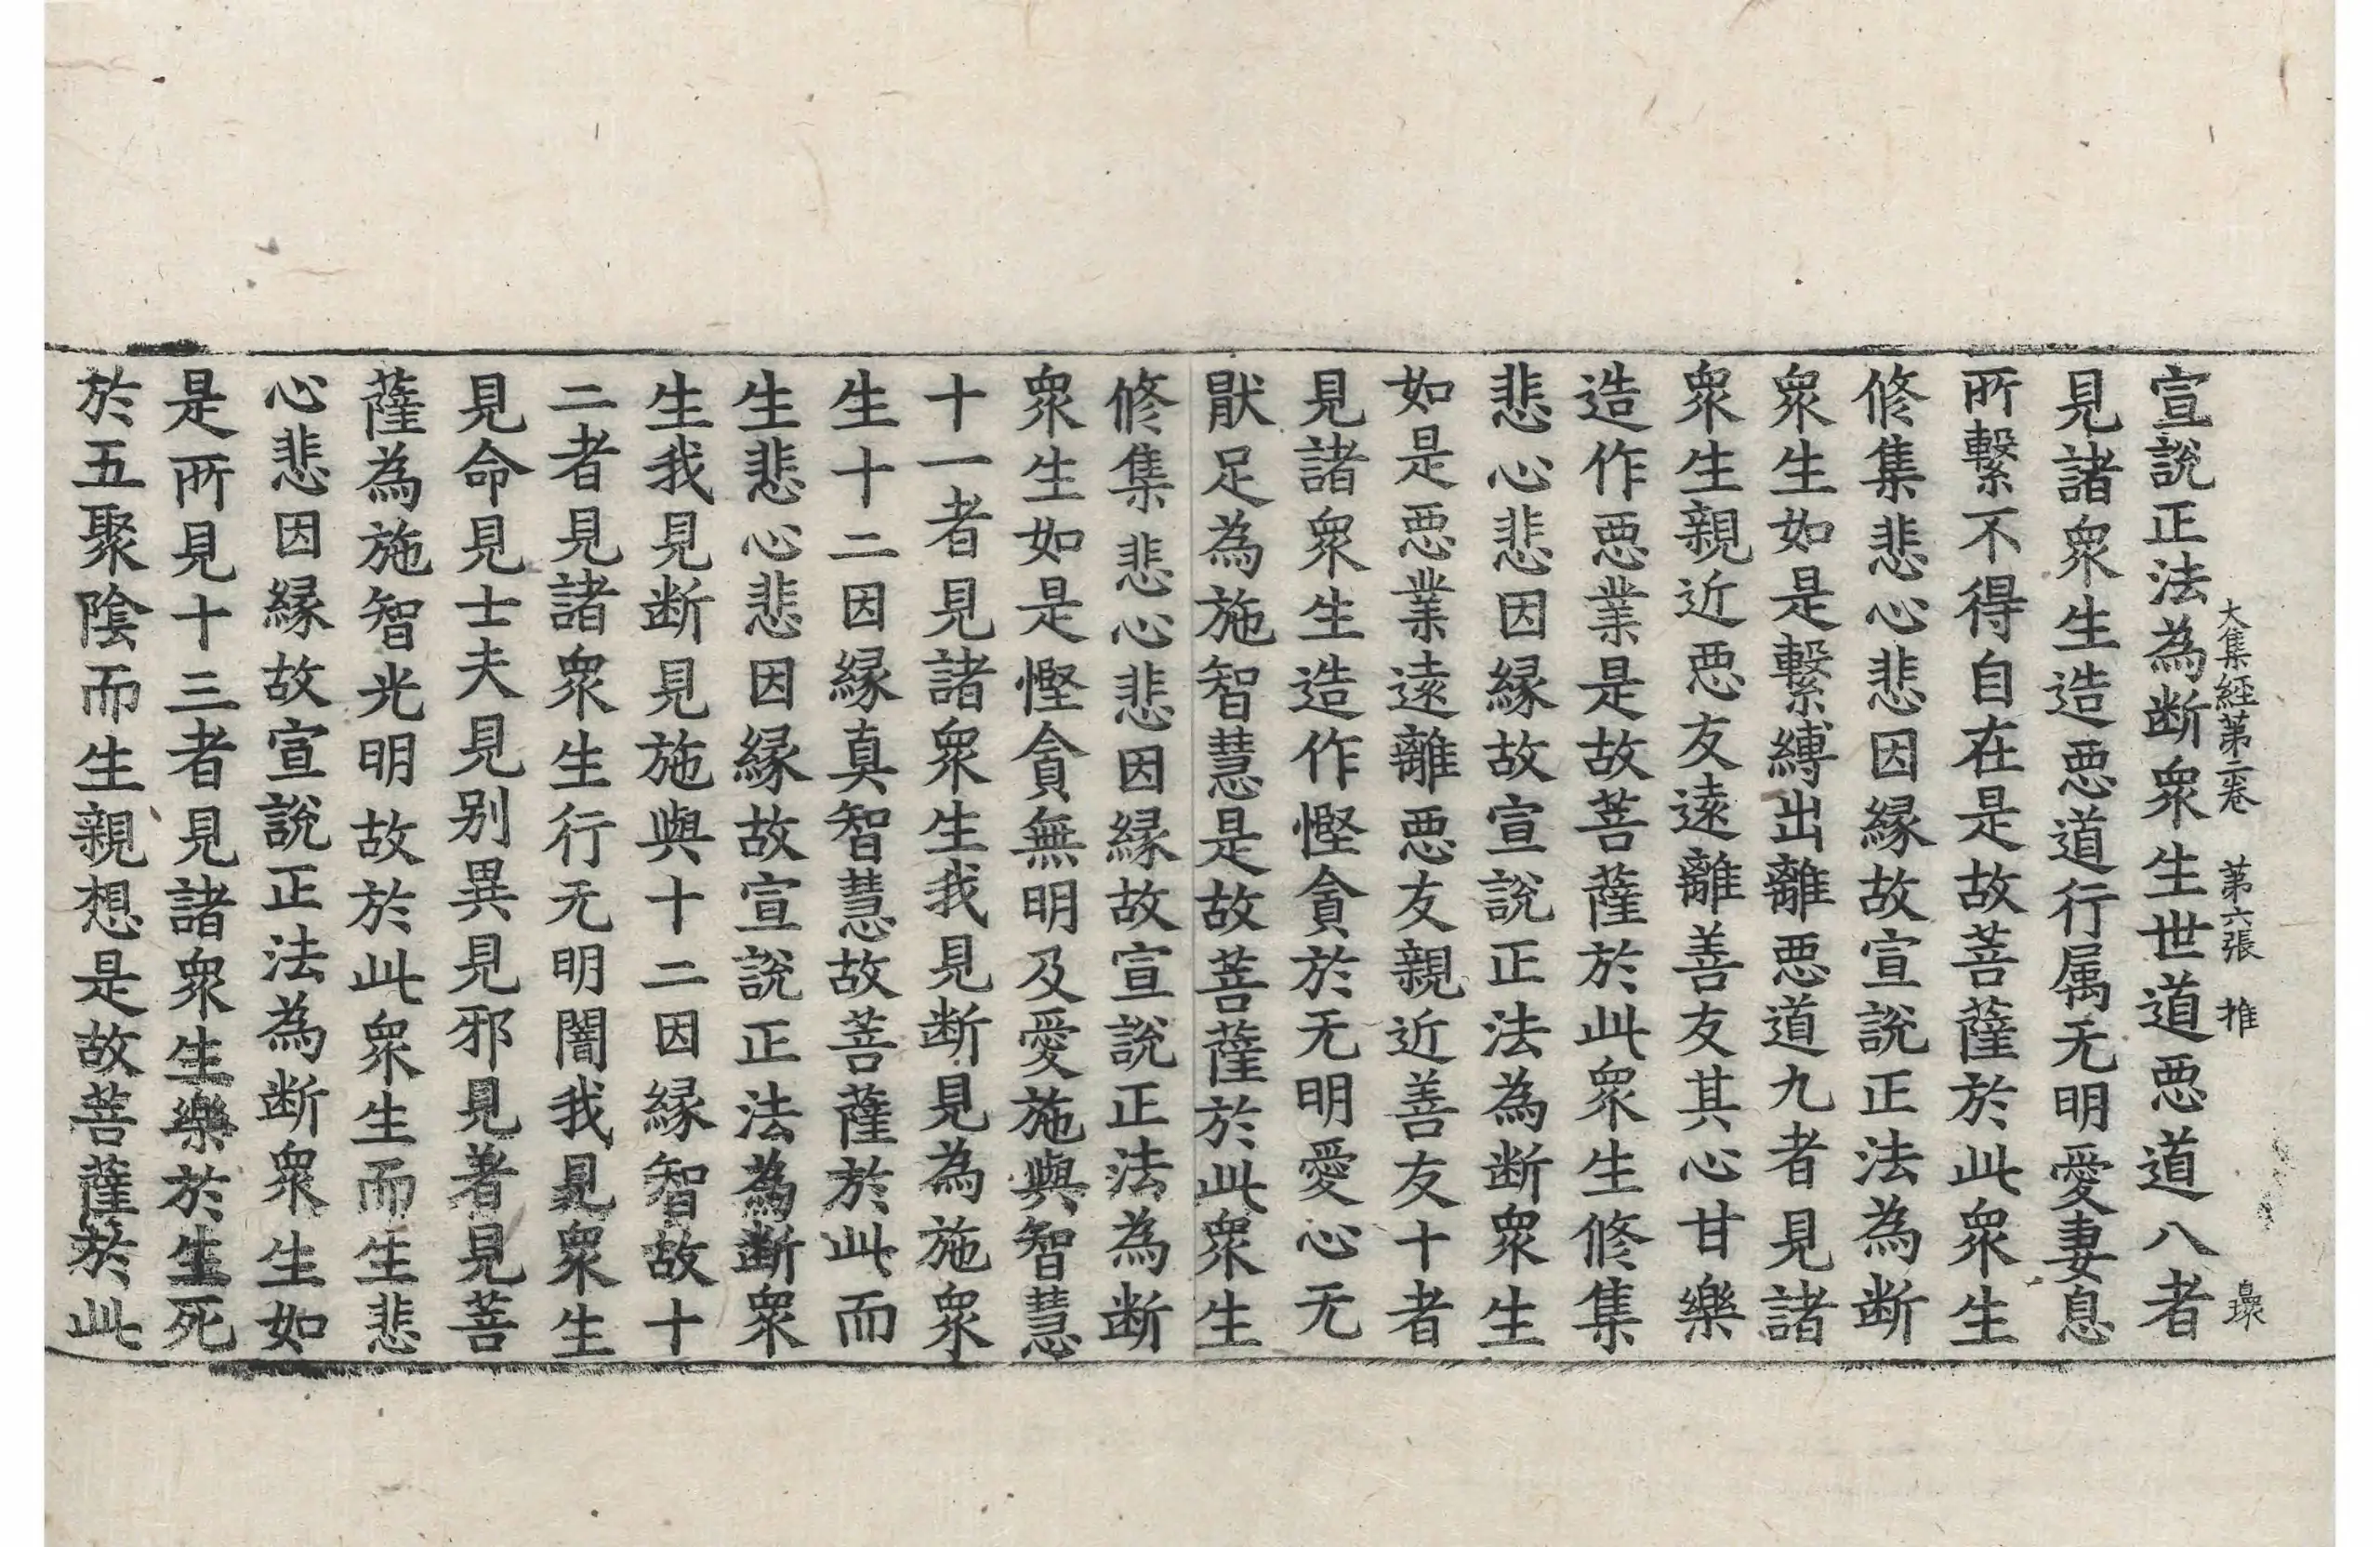 大集経第二巻 第六張 推
宣說正法為断衆生世道惡道八者
見諸衆生造惡道行属无明愛妻息
所繫不得自在是故菩薩於此衆生
修集悲心悲因縁故宣說正法為断
衆生如是繫縛出離惡道九者見諸
衆生親近惡友遠離善友其心甘樂
造作惡業是故菩薩於此衆生修集
悲心悲因縁故宣說正法為断衆生
如是惡業遠離惡友親近善友十者
見諸衆生造作慳貪於无明愛心无
猒足為施智慧是故菩薩於此衆生
修集悲心悲因縁故宣說正法為断
衆生如是慳貪無明及愛施與智慧
十一者見諸衆生我見断見為施衆
生十二因縁真智慧故菩薩於此而
生悲心悲因縁故宣說正法為断衆
生我見断見施與十二因縁智故十
二者見諸衆生行无明闇我見衆生
見命見士夫見别異見邪見著見菩
薩為施智光明故於此衆生而生悲
心悲因縁故宣說正法為断衆生如
是所見十三者見諸衆生樂於生死
於五聚陰而生親想是故菩薩於此